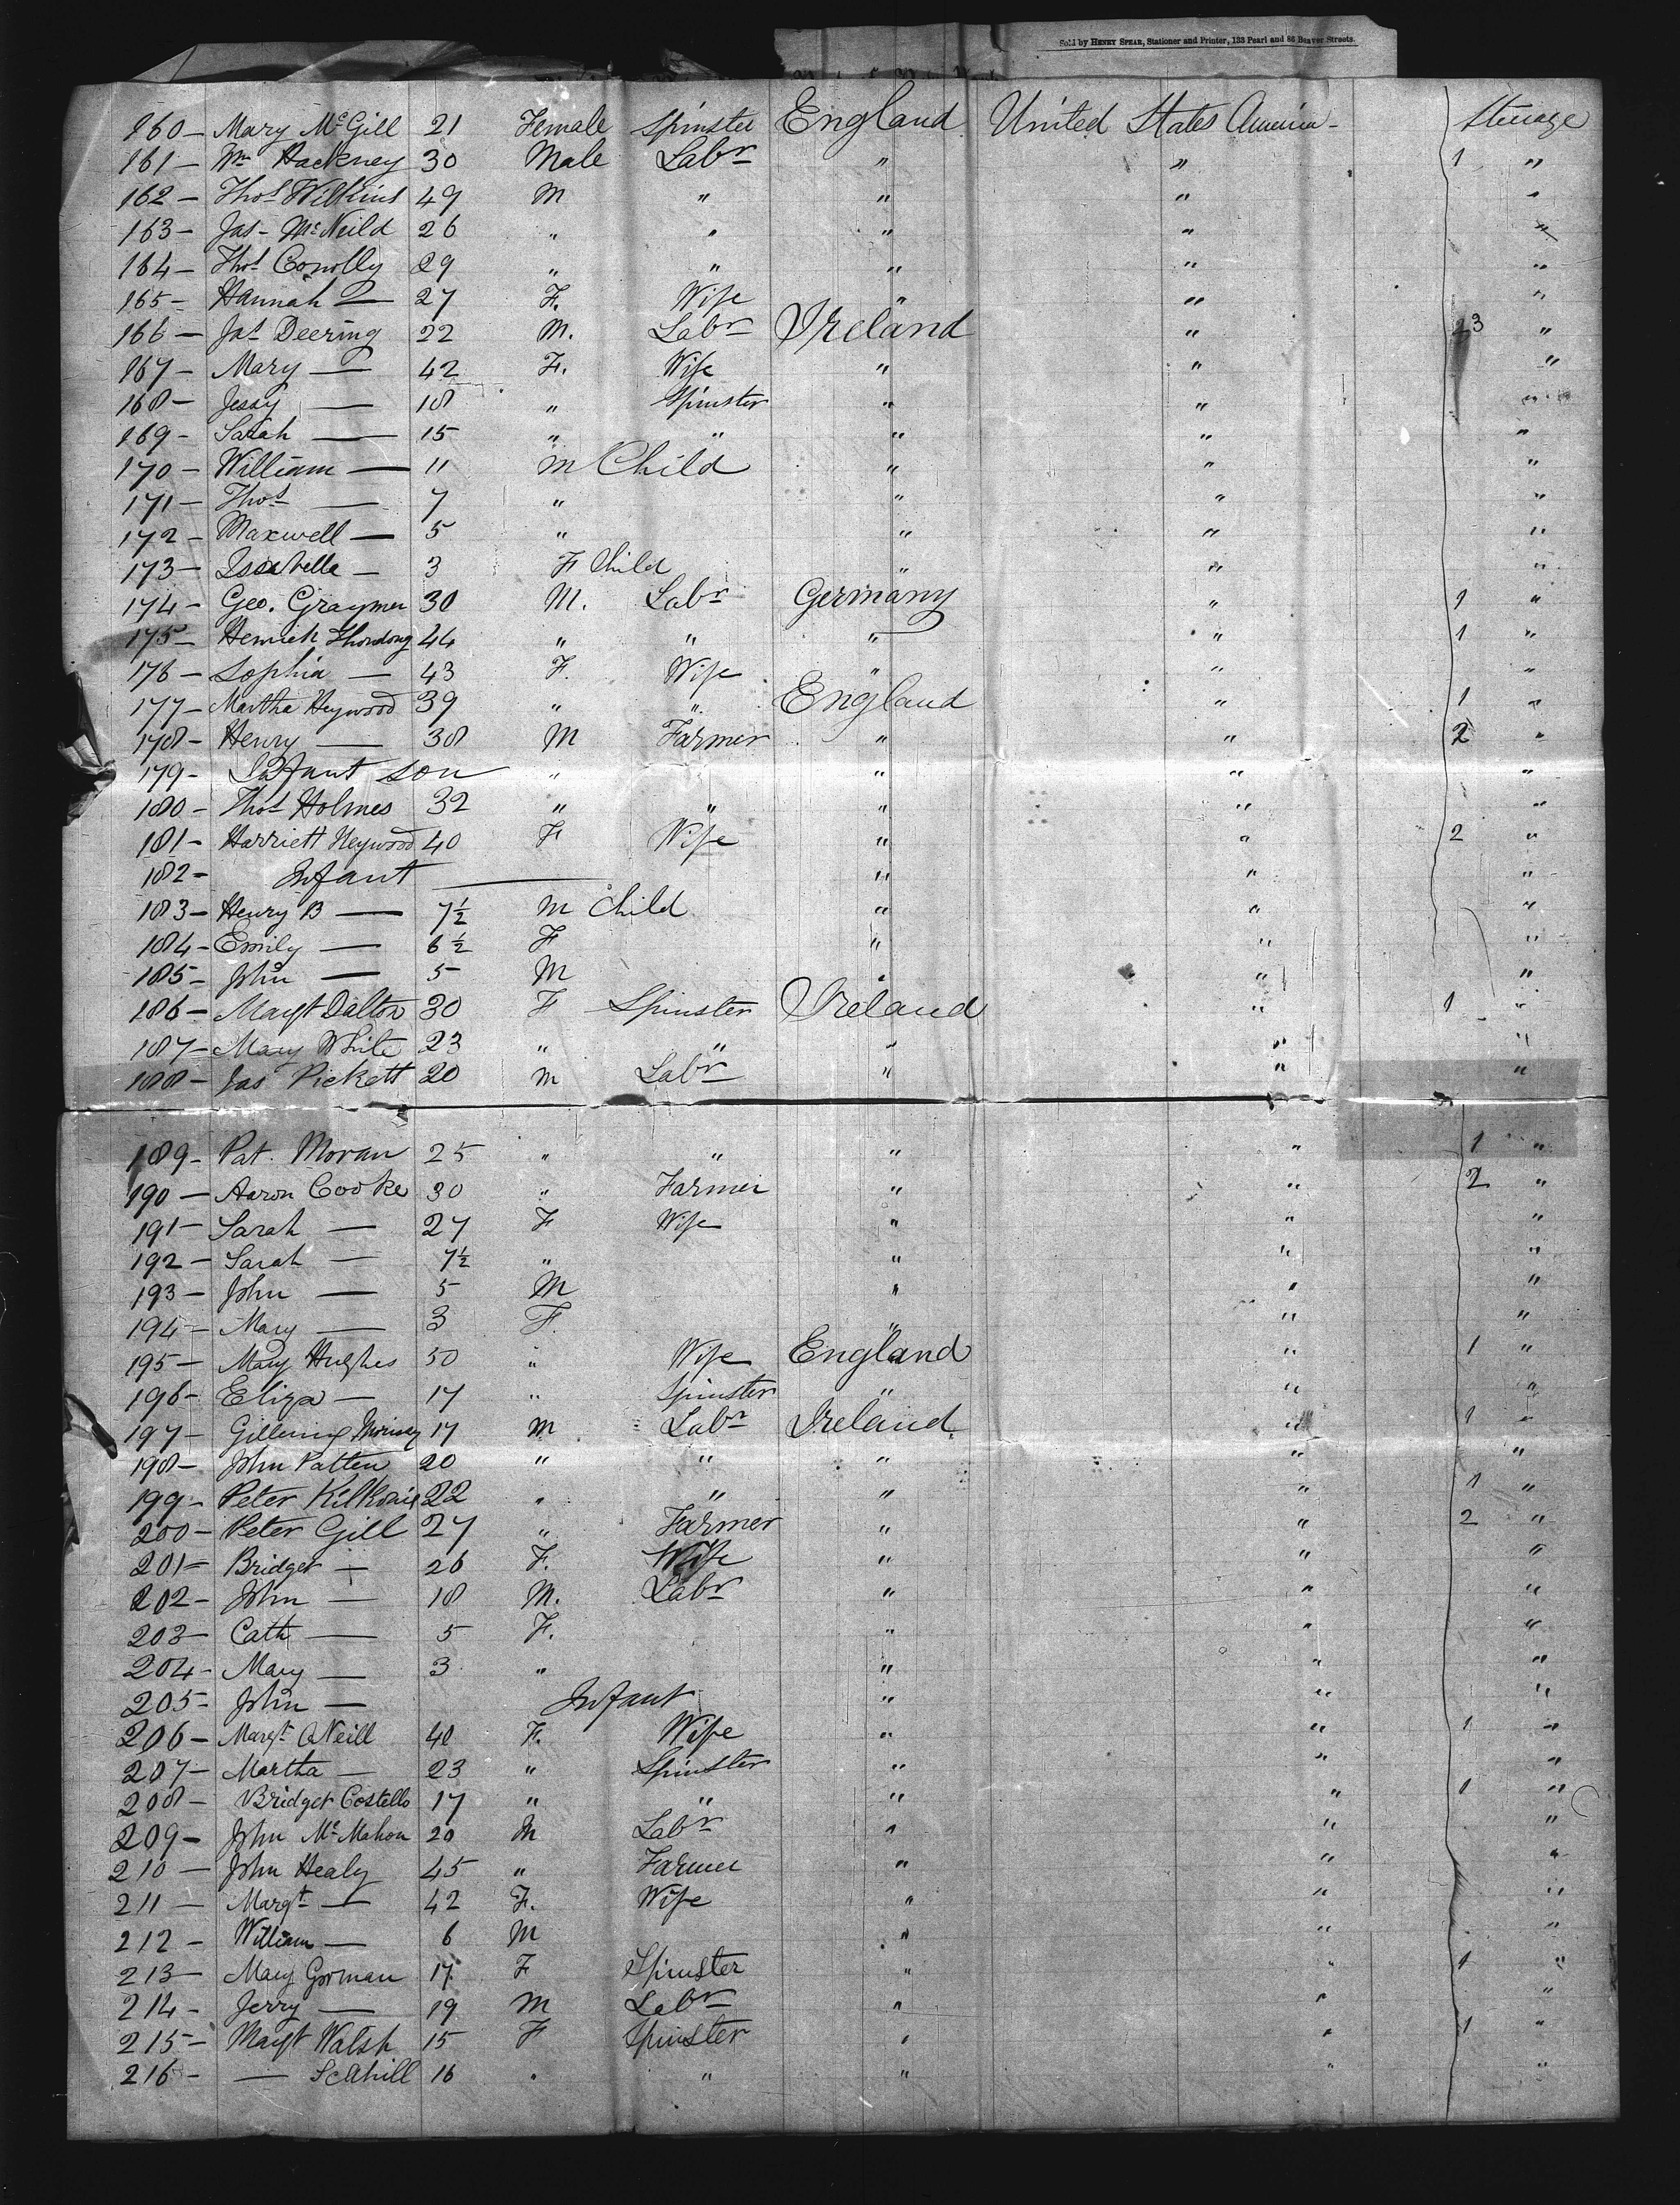 Sold by HENRY SPEAR, Stationer and Printer, 133 Pearl and 86 Beaver Streets.
160 - Mary McGill 21 Female Spinster England United States America - Steerage
161 - Wm Hackney 30 Male Labr " " 1 "
162 - Thos Wilkins 49 M " " " "
163 - Jas - McNeild 26 " " " " "
164 - Thos Conolly 29 " " " " "
165 - Hannah — 27 F. Wife " " "
166 - Jas Deering 22 M. Labr Ireland " 3 "
167 - Mary — 42 F. Wife " " "
168 - Jessy — 18 " Spinster " " "
169 - Sarah — 15 " " " " "
170 - William — 11 M Child " " "
171 - Thos — 7 " " " "
172 - Maxwell — 5 " " " "
173 - Issabella — 3 F Child " " "
174 - Geo. Graymer 30 M. Labr Germany " 1 "
175 - Henrich 44 " " " " 1 "
176 - Sophia — 43 F. Wife " " "
177 - Martha Heywood 39 " " England " 1 "
178 - Henry — 38 M Farmer " " 2 "
179 - Infant son " " " "
180 - Thos Holmes 32 " " " " "
181 - Harriett Heywood 40 F Wife " " 2 "
182 - Infant — " " "
183 - Henry B — 7½ M Child " " "
184 - Emily — 6½ F " " "
185 - John — 5 M " " "
186 - Margt Dalton 30 F Spinster Ireland " 1 "
187 - Mary White 23 " " " " "
188 - Jas Pickett 20 M Labr " " "
189 - Pat. Moran 25 " " " " 1 "
190 - Aaron Cooke 30 " Farmer " " 2 "
191 - Sarah — 27 F Wife " " "
192 - Sarah — 7½ " " " "
193 - John — 5 M " " "
194 - Mary — 3 F. " " "
195 - Mary Hughes 50 " Wife England " 1 "
196 - Eliza — 17 " Spinster " " "
197 - 17 M Labr Ireland " 1 "
198 - John Patten 20 " " " " "
199 - Peter 22 " " " " 1 "
200 - Peter Gill 27 " Farmer " " 2 "
201 - Bridget — 26 F. Wife " " "
202 - John — 18 M. Labr " " "
203 - Cath — 5 F. " " "
204 - Mary — 3 " " " "
205 - John — Infant " " "
206 - Margt ONeill 40 F. Wife " " 1 "
207 - Martha — 23 " Spinster " " "
208 - Bridget Costello 17 " " " " 1 "
209 - John McMahon 20 M Labr " " "
210 - John Healy 45 " Farmer " " "
211 - Margt — 42 F. Wife " " "
212 - William — 6 M " " "
213 - Mary Gorman 17 F Spinster " " 1 "
214 - Jerry — 19 M Labr " " "
215 - Margt Walsh 15 F Spinster " " 1 "
216 - — Scahill 16 " " " " "